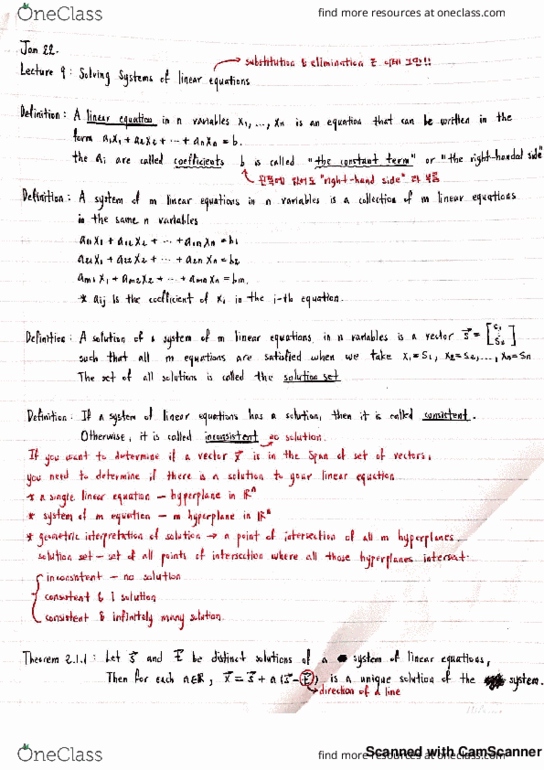 OneClass
find more resources at oneclass.com
Jan 22.
substitution & elimination
Lecture 9 : Solving Systems of linear equations
Definition : A linear equation in n variables x₁, ..., xₙ is an equation that can be written in the
form a₁x₁ + a₂x₂ + ... + aₙxₙ = b.
the aᵢ are called coefficients b is called "the constant term" or "the right-handed side"
"right-hand side"
Definition : A system of m linear equations in n variables is a collection of m linear equations
in the same n variables
a₁₁x₁ + a₁₂x₂ + ... + a₁ₙxₙ = b₁
a₂₁x₁ + a₂₂x₂ + ... + a₂ₙxₙ = b₂
aₘ₁x₁ + aₘ₂x₂ + ... + aₘₙxₙ = bₘ.
* aij is the coefficient of xⱼ in the i-th equation.
Definition : A solution of a system of m linear equations in n variables is a vector s⃗ =
such that all m equations are satisfied when we take x₁ = s₁, x₂ = s₂, ..., xₙ = sₙ
The set of all solutions is called the solution set
Definition : If a system of linear equations has a solution, then it is called consistent.
Otherwise, it is called inconsistent no solution.
If you want to determine if a vector is in the span of set of vectors,
you need to determine if there is a solution to your linear equation
* a single linear equation – hyperplane in ℝⁿ
* system of m equation – m hyperplane in ℝⁿ
* geometric interpretation of solution → a point of intersection of all m hyperplanes.
solution set – set of all points of intersection where all those hyperplanes intersect.
inconsistent – no solution
consistent & 1 solution
consistent & infinitely many solution.
Theorem 2.1.1 : Let s⃗ and t⃗ be distinct solutions of a system of linear equations,
Then for each a∈ℝ, x⃗ = s⃗ + a(s⃗ - t⃗) is a unique solution of the system.
direction of a line
Scanned with CamScanner
OneClass
find more resources at oneclass.com